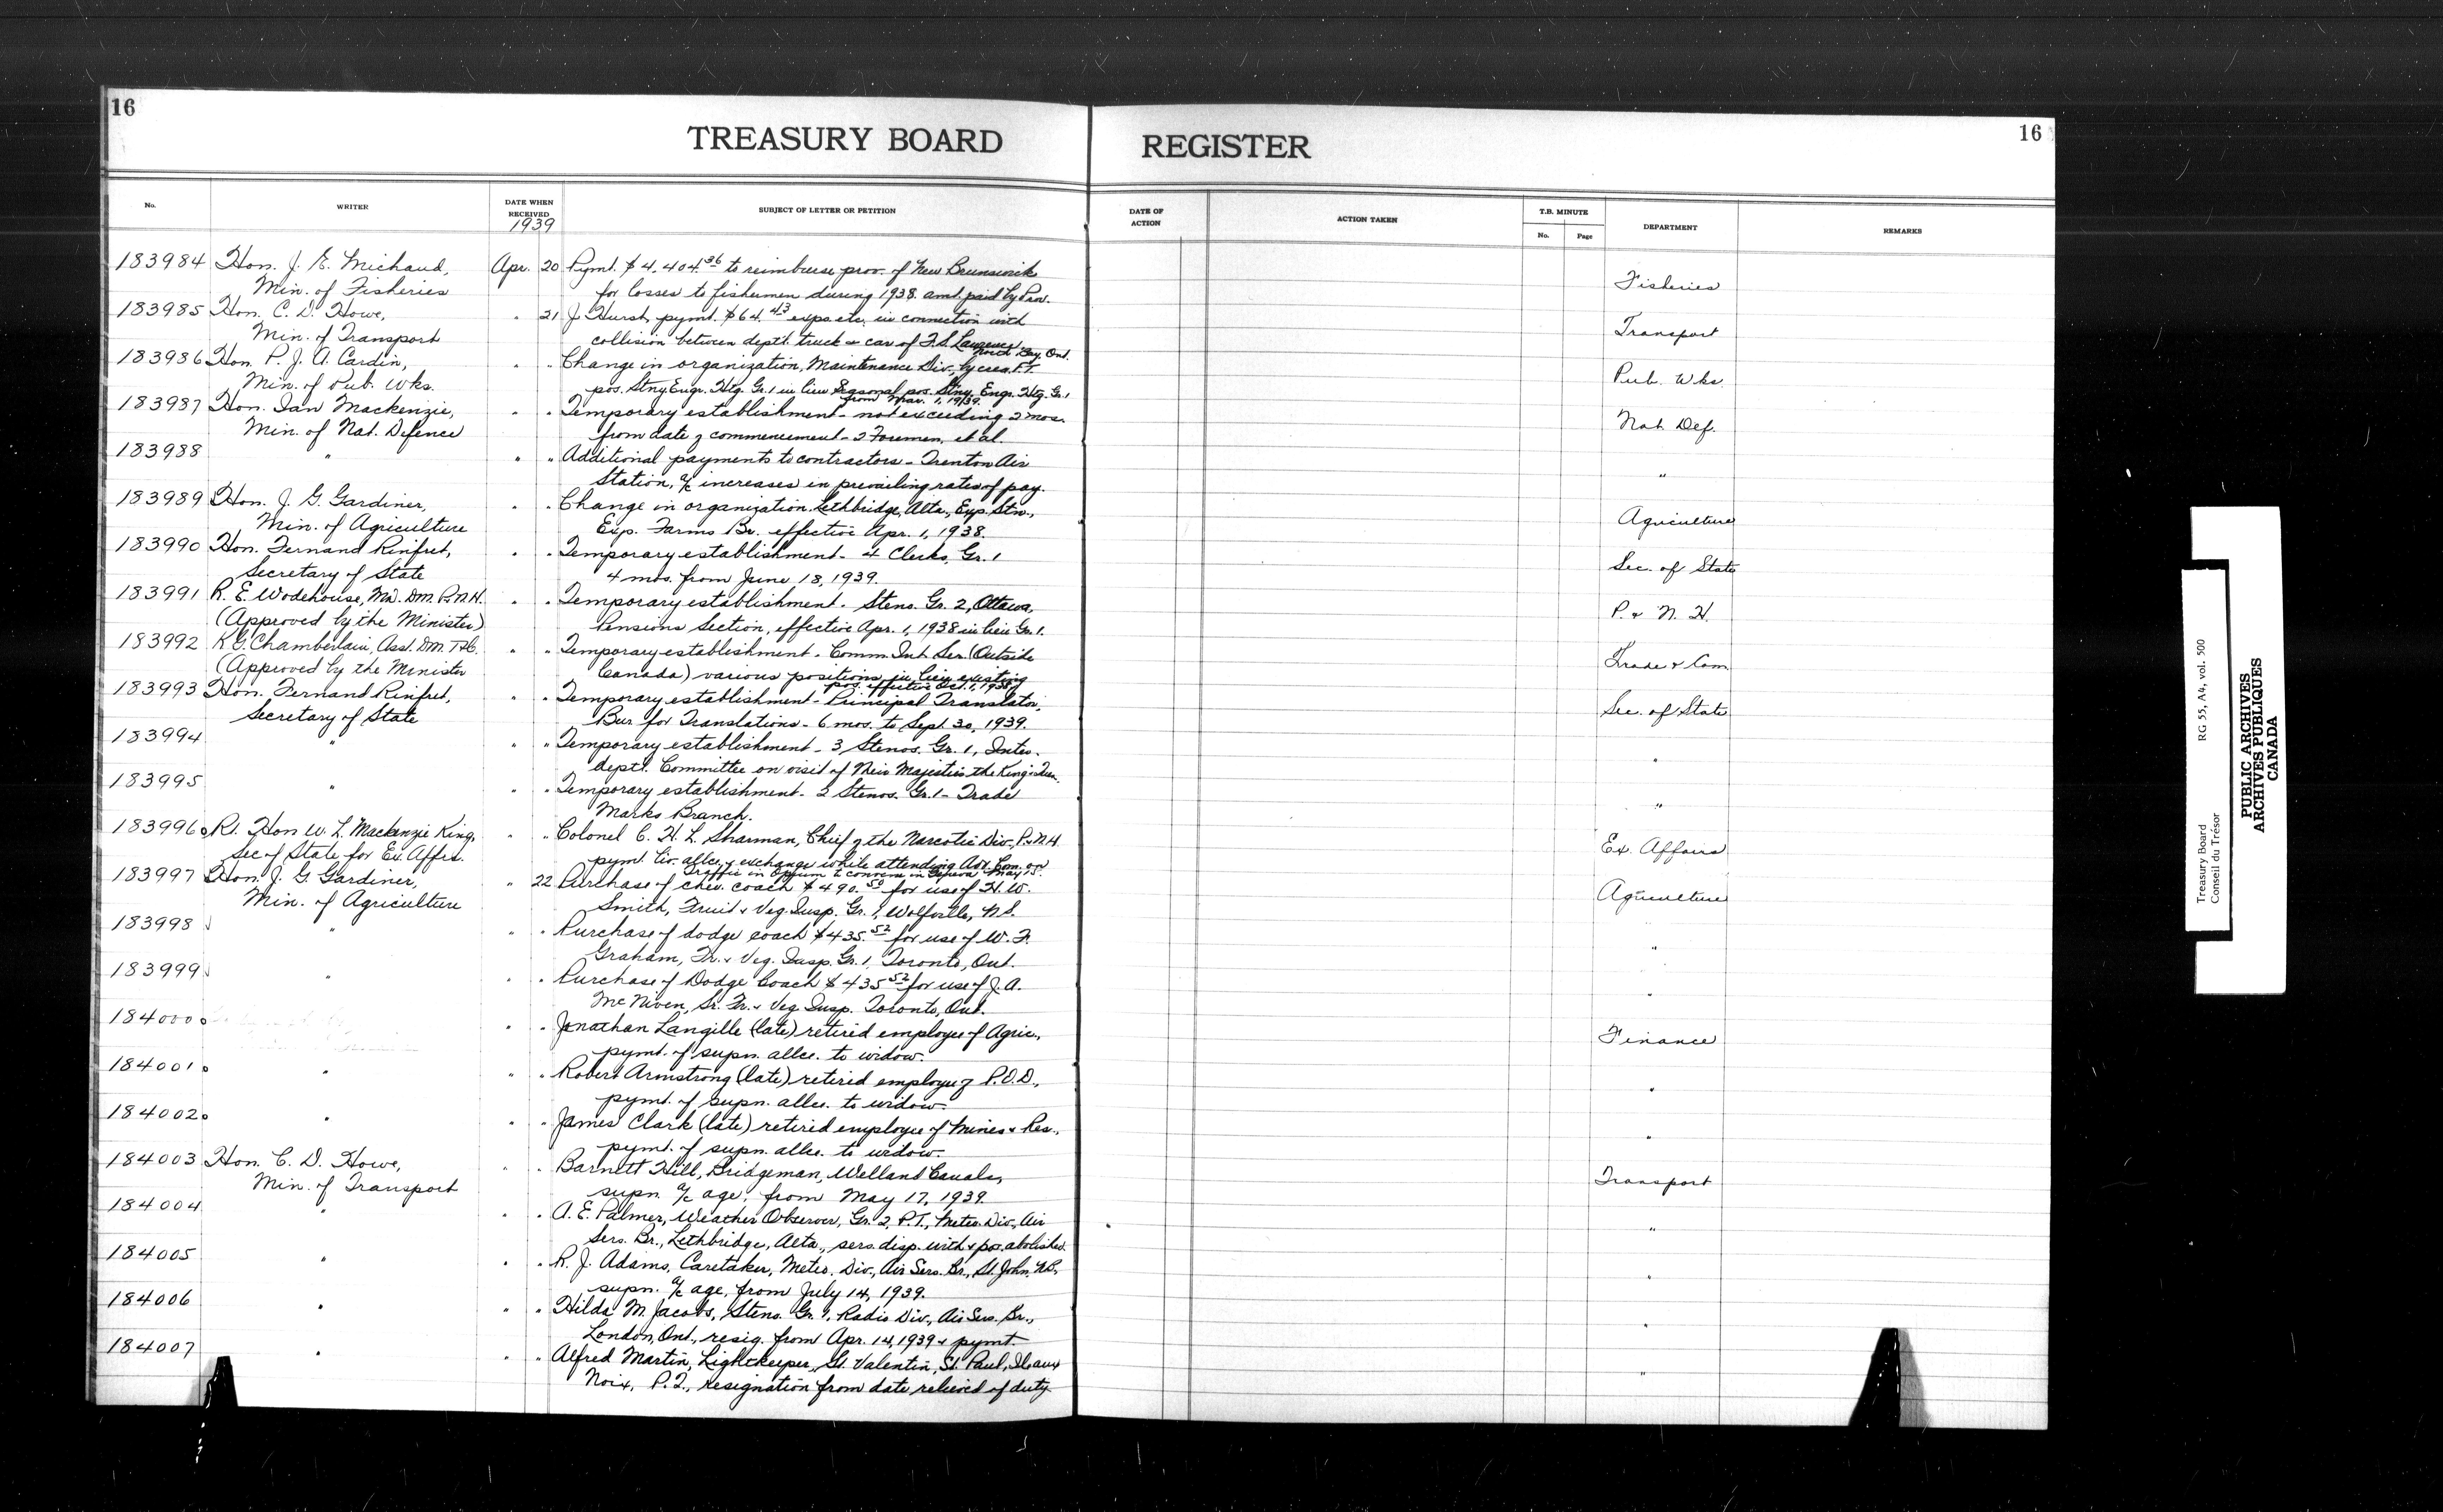 16
TREASURY BOARD REGISTER
16
No. WRITER DATE WHEN RECEIVED SUBJECT OF LETTER OR PETITION DATE OF ACTION ACTION TAKEN T.B. MINUTE No. Page DEPARTMENT REMARKS
1939
183984 Hon. J. E. Michaud, Apr. 20 Pymt. $4,404.36 to reimburse prov. of New Brunswick Fisheries
Min. of Fisheries for losses to fishermen during 1938. amt. paid by Prov.
183985 Hon. C. D. Howe, " 21 J. Hurst, pymt. $64.43 exps. etc. in connection with Transport
Min. of Transport collision between deptl. truck & car of F.S. Lawrence, North Bay, Ont.
183986 Hon. P. J. A. Cardin, " " Change in organization, Maintenance Div., by crea. F.T. Pub. Wks.
Min. of Pub. Wks. pos. Stny. Engr. Htg. Gr. 1 in lieu Seasonal pos. Stny. Engr. Htg. Gr. 1
from Mar. 1, 19/39.
183987 Hon. Ian Mackenzie, " " Temporary establishment - not exceeding 2 mos. Nat. Def.
Min. of Nat. Defence from date of commencement - 2 Foremen, et al.
183988 " " " Additional payments to contractors - Trenton Air "
Station, a/c increases in prevailing rates of pay.
183989 Hon. J. G. Gardiner, " " Change in organization. Lethbridge, Alta., Exp. Stn., Agriculture
Min. of Agriculture Exp. Farms Br. effective Apr. 1, 1938.
183990 Hon. Fernand Rinfret, " " Temporary establishment - 4 Clerks, Gr. 1 Sec. of State
Secretary of State 4 mos. from June 18, 1939.
183991 R. E. Wodehouse, M.D. D.M. P.&N.H. " " Temporary establishment. Steno. Gr. 2, Ottawa, P. & N. H.
(Approved by the Minister) Pensions Section, effective Apr. 1, 1938 in lieu Gr. 1.
183992 K.G. Chamberlain, Asst. D.M. T.&C. " " Temporary establishment. Comm. Int. Ser. (Outside Trade & Com.
(Approved by the Minister Canada) various positions in lieu existing
pos. effective Oct. 1, 1938.
183993 Hon. Fernand Rinfret, " " Temporary establishment - Principal Translator, Sec. of State
Secretary of State Bur. for Translations - 6 mos. to Sept. 30, 1939.
183994 " " " Temporary establishment - 3 Stenos. Gr. 1, Inter- "
deptl. Committee on visit of Their Majesties the King & Queen.
183995 " " " Temporary establishment - 2 Stenos. Gr. 1 - Trade "
Marks Branch.
183996 Rt. Hon W. L. Mackenzie King, " " Colonel C. H. L. Sharman, Chief of the Narcotic Div., P.&N.H. Ex. Affairs
Sec of State for Ex. Affrs. pymt. liv. allce. & exchange while attending Adv. Com. on
Traffic in Opium to convene in Geneva May 15.
183997 Hon. J. G. Gardiner, " 22 Purchase of Chev. coach $490.50 for use of H. W. Agriculture
Min. of Agriculture Smith, Fruit & Veg. Insp. Gr. 1, Wolfville, N.S.
183998 " " " Purchase of dodge coach $435.52 for use of W. F. "
Graham, Fr. & Veg. Insp. Gr. 1, Toronto, Ont.
183999 " " " Purchase of Dodge Coach $435.52 for use of J. A. "
McNiven, Sr. Fr. & Veg. Insp. Toronto, Ont.
184000 " " Jonathan Langille (late) retired employee of Agric., Finance
pymt. of supn. allce. to widow.
184001 " " " Robert Armstrong (late) retired employee of P.O.D., "
pymt. of supn. allce. to widow.
184002 " " " James Clark (late) retired employee of Mines & Res., "
pymt. of supn. allce. to widow.
184003 Hon. C. D. Howe, " " Barnett Hill, Bridgeman, Welland Canals, Transport
Min. of Transport supn. a/c age, from May 17, 1939.
184004 " " " A. E. Palmer, Weather Observer, Gr. 2, P.T., Meteo. Div., Air "
Serv. Br., Lethbridge, Alta., sers. disp. with & pos. abolished.
184005 " " " R. J. Adams, Caretaker, Meteo. Div., Air Serv. Br., St. John, N.B., "
supn. a/c age, from July 14, 1939.
184006 " " " Hilda M. Jacobs, Steno. Gr. 1, Radio Div., Air Serv. Br., "
London, Ont., resig. from Apr. 14, 1939 & pymt.
184007 " " " Alfred Martin, Lightkeeper, St. Valentin, St. Paul, Ile aux "
Noix, P.Q., resignation from date relieved of duty.
Treasury Board RG 55, A4, vol. 500
Conseil du Trésor
PUBLIC ARCHIVES
ARCHIVES PUBLIQUES
CANADA